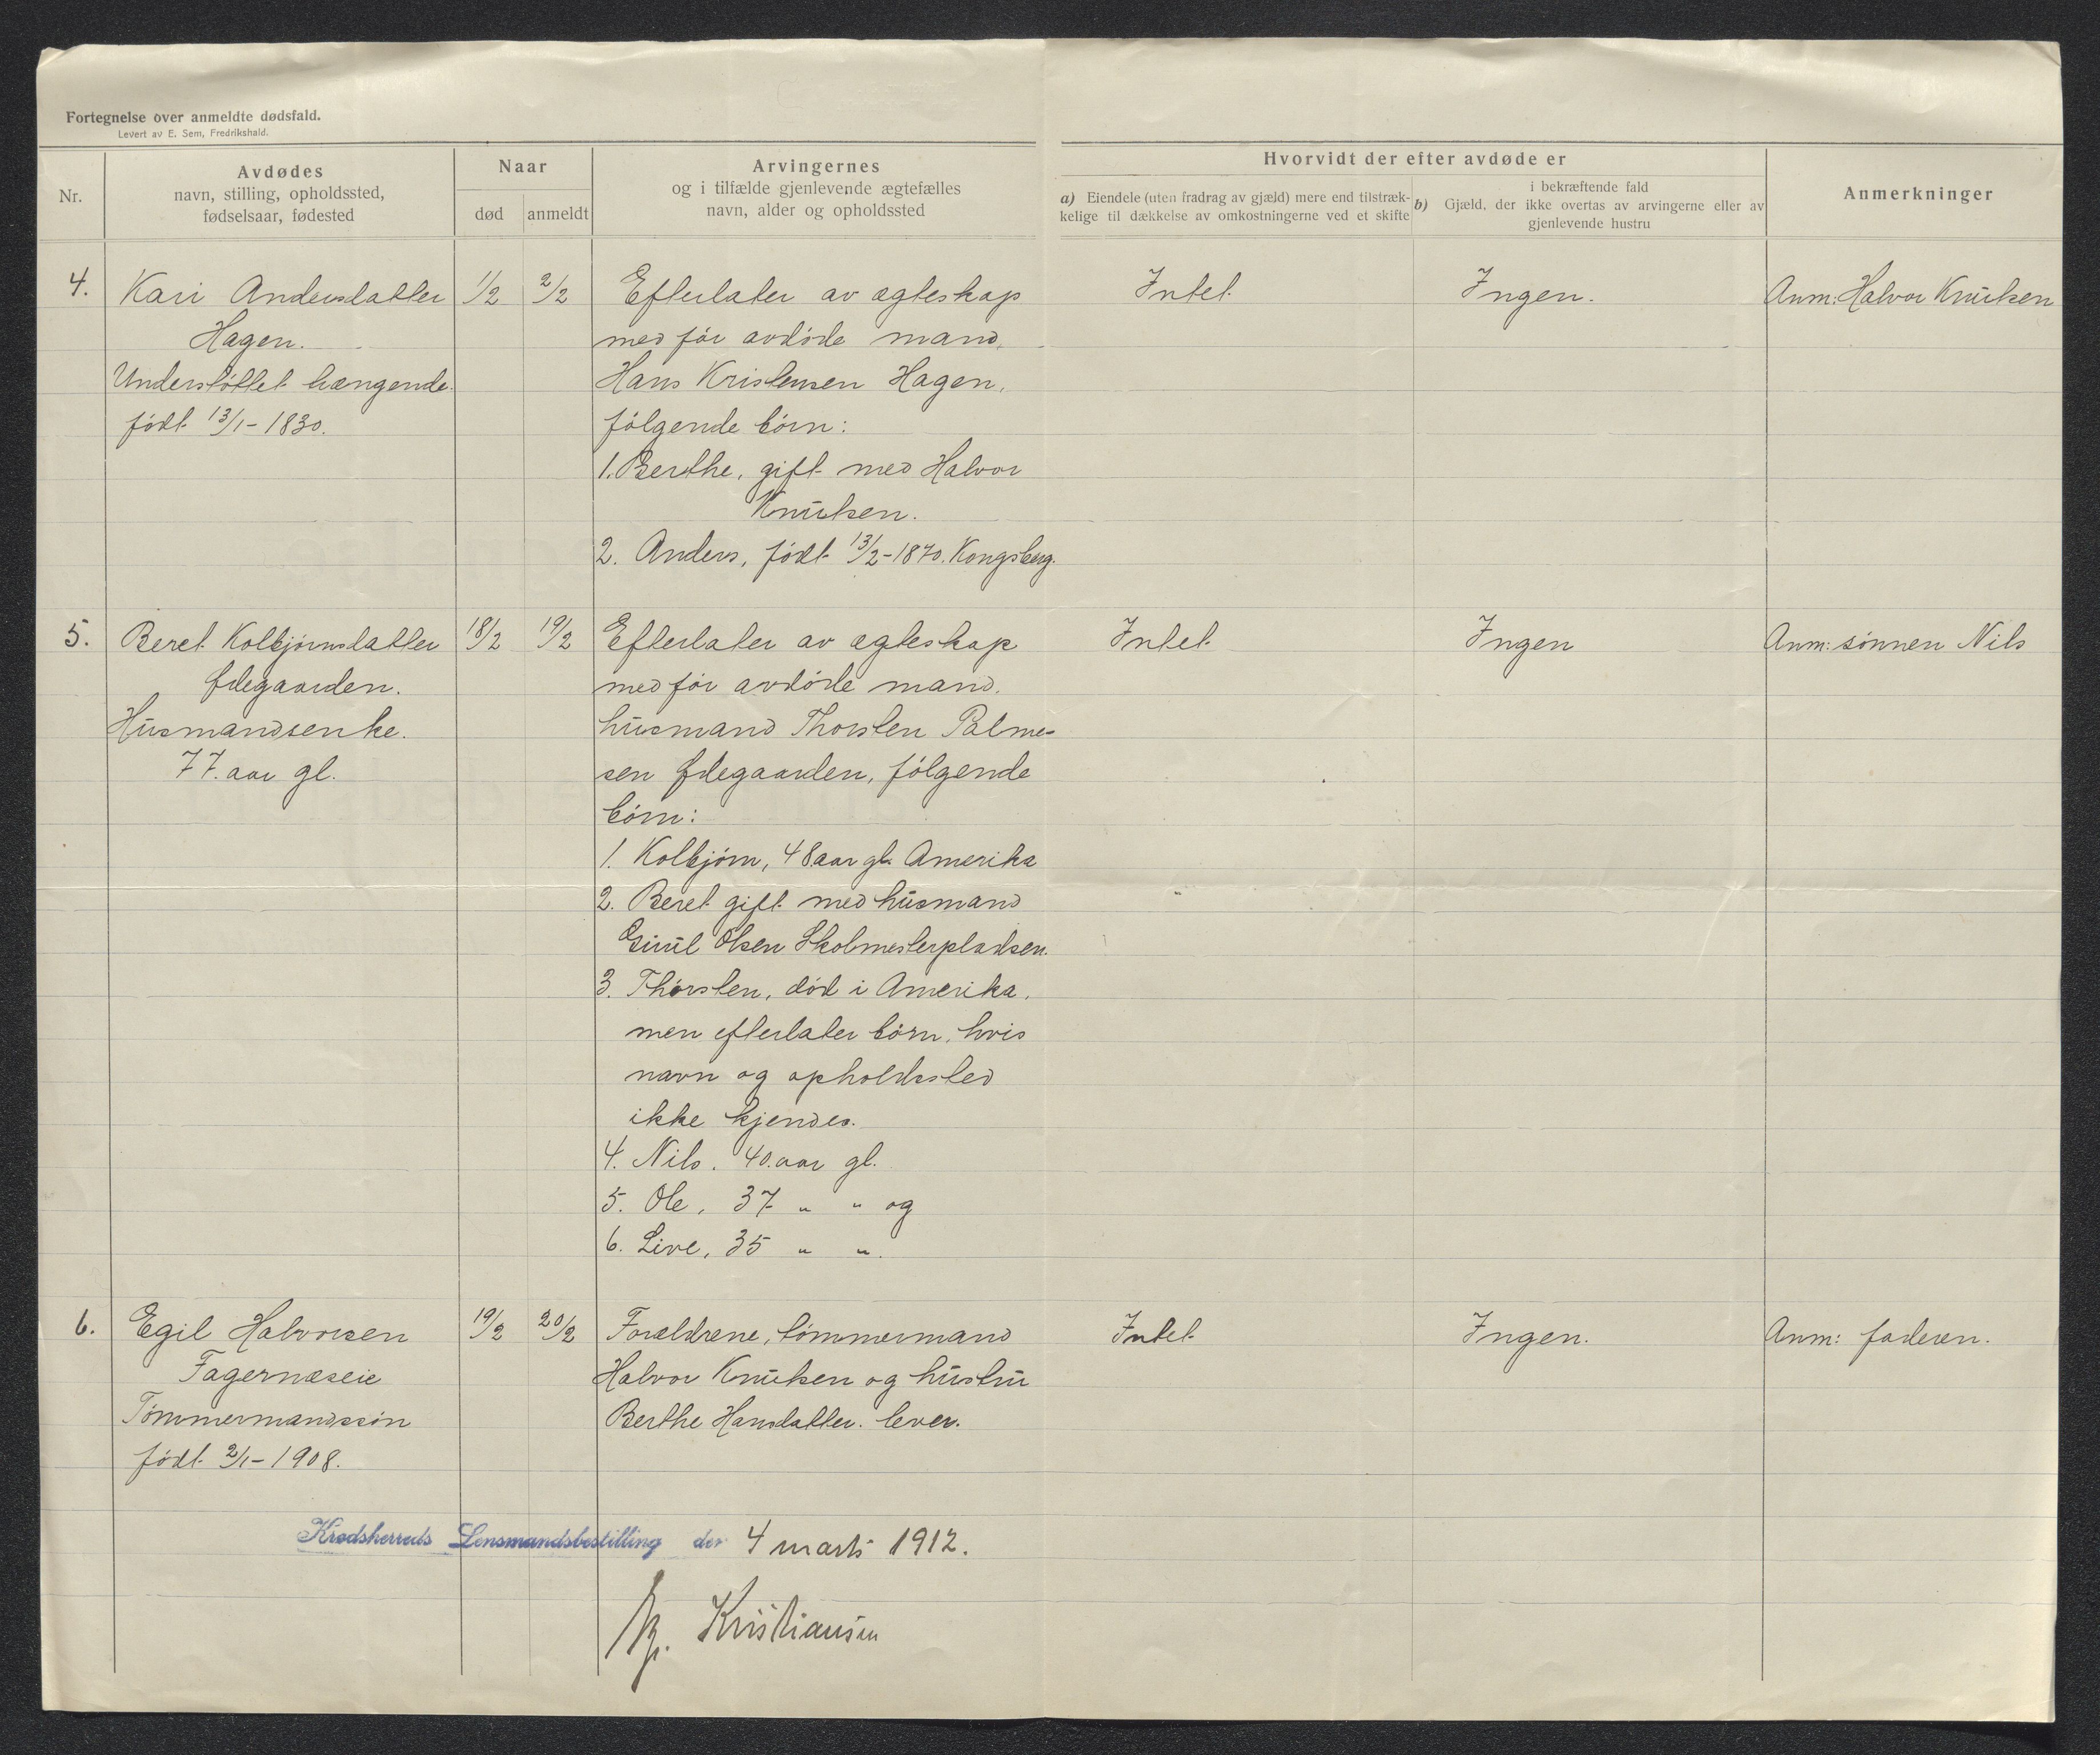 Fortegnelse over anmeldte dødsfald.
Levert av E. Sem, Fredrikshald.
Nr.
Avdødes
navn, stilling, opholdssted,
fødselsaar, fødested
Naar
død
anmeldt
Arvingernes
og i tilfælde gjenlevende ægtefælles
navn, alder og opholdssted
Hvorvidt der efter avdøde er
a) Eiendele (uten fradrag av gjæld) mere end tilstræk-
kelige til dækkelse av omkostningerne ved et skifte
i bekræftende fald
b) Gjæld, der ikke overtas av arvingerne eller av
gjenlevende hustru
Anmerkninger
4.
Kari Andersdatter
Hagen.
Understøttet trængende.
født 13/1-1830.
1/2
2/2
Efterlater av ægteskap
med før avdøde mand,
Hans Kristensen Hagen,
følgende børn:
1. Berthe, gift med Halvor
Knutsen.
2. Anders, født 13/2-1870. Kongsberg.
Intet
Ingen.
Anm: Halvor Knutsen
5.
Beret Kolbjørnsdatter
Ødegaarden.
Husmandsenke.
77. aar gl.
18/2
19/2
Efterlater av ægteskap
med før avdøde mand,
husmand Thorsten Palme-
sen Ødegaarden, følgende
børn:
1. Kolbjørn, 48 aar gl. Amerika
2. Beret gift med husmand
Guul Olsen Skolmesterpladsen.
3. Thorsten, død i Amerika,
men efterlater børn, hvis
navn og opholdssted
ikke kjendes.
4. Nils. 40. aar gl.
5. Ole, 37 " " og
6. Live, 35 " ".
Intet
Ingen
Anm: sønnen Nils
6.
Egil Halvorsen
Fagernæseie
Tømmermandssøn
født 2/1-1908.
19/2
20/2
Forældrene, tømmermand
Halvor Knutsen og hustru
Berthe Hansdatter. lever.
Intet
Ingen.
Anm: faderen.
Krødsherreds Lensmandsbestilling den 4 marts 1912.
Kristiansen